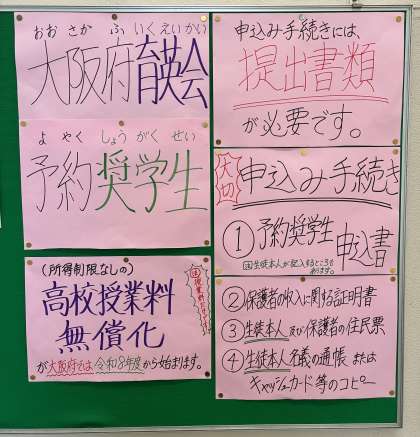 おおさかふいくえいかい
大阪府育英会
よやくしょうがくせい
予約奨学生
(所得制限なしの)
高校授業料
無償化
が大阪府では令和8年度から始まります。
申込み手続きには、
提出書類
が必要です。
大切
申込み手続き
①予約奨学生申込書
注生徒本人が記入するところも
あります。
②保護者の収入に関する証明書
③生徒本人及び保護者の住民票
④生徒本人名義の通帳または
キャッシュカード等のコピー